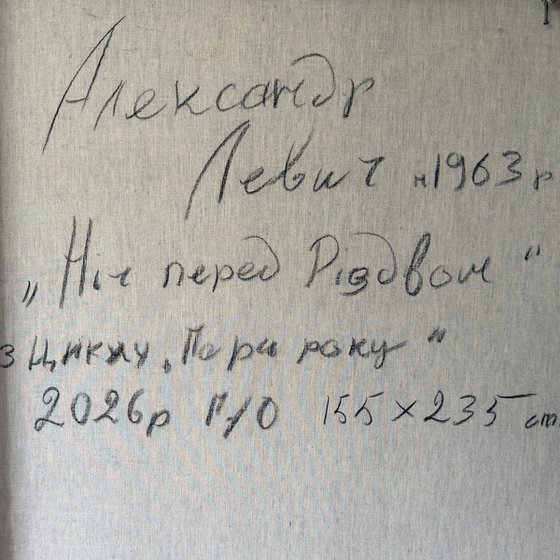 Александр
Левич н1963р
„Ніч перед Різдвом“
з Циклу „Пори року“
2026р П/О 155×235 cm